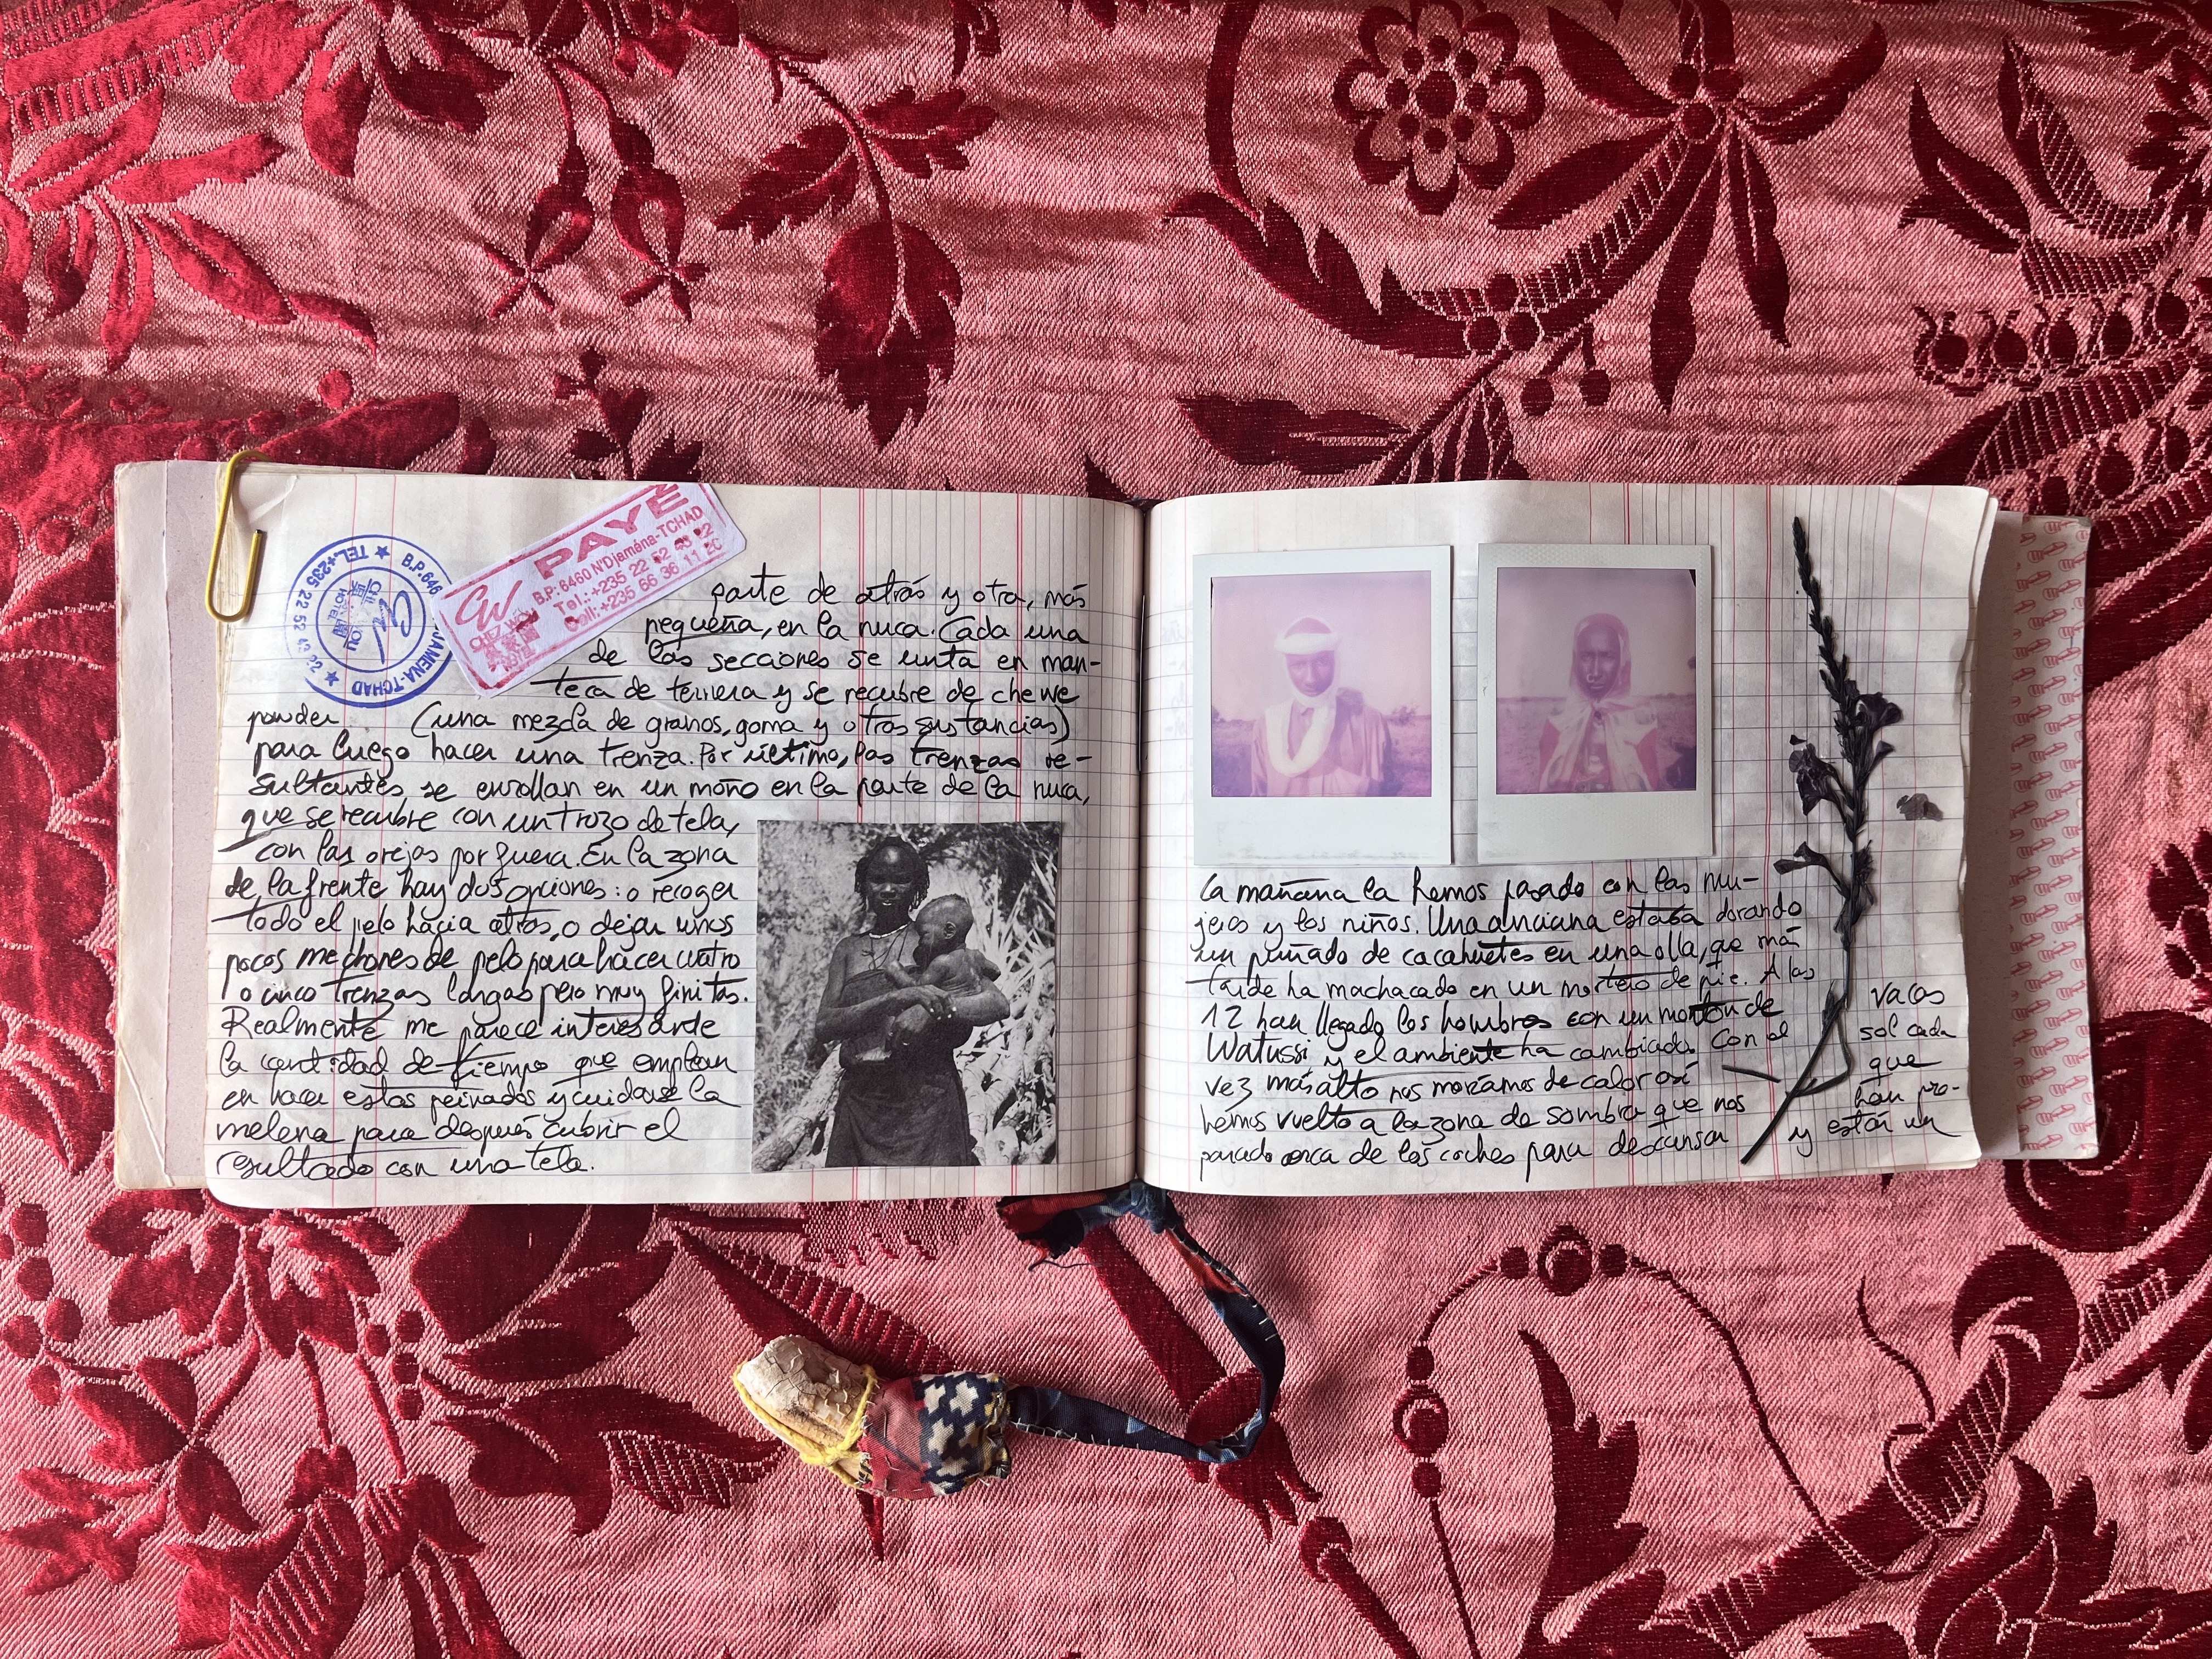 TEL.+235 22 52 43 22 ★ N'DJAMENA-TCHAD ★ B.P.646
HOTEL
PAYÉ
CW
B.P: 6460 N'Djaména-TCHAD
CHEZ WOU
Tel.:+235 22 52 43 22
HOTEL
Cell:+235 66 36 11 20
parte de atrás y otra, más
pequeña, en la nuca. Cada una
de las secciones se unta en man-
teca de ternera y se recubre de chewe
powder (una mezcla de granos, goma y otras sustancias)
para luego hacer una trenza. Por último, las trenzas re-
sultantes se enrollan en un moño en la parte de la nuca,
que se recubre con un trozo de tela,
con las orejas por fuera. En la zona
de la frente hay dos opciones: o recoger
todo el pelo hacia atrás, o dejar unos
pocos mechones de pelo para hacer cuatro
o cinco trenzas largas pero muy finitas.
Realmente me parece interesante
la cantidad de tiempo que emplean
en hacer estos peinados y cuidarse la
melena para después cubrir el
resultado con una tela.
La mañana la hemos pasado con las mu-
jeres y los niños. Una anciana estaba dorando
un puñado de cacahuetes en una olla, que más
tarde ha machacado en un mortero de pie. A las
12 han llegado los hombres con un montón de vacas
Watussi y el ambiente ha cambiado. Con el sol cada
vez más alto nos moríamos de calor así que
hemos vuelto a la zona de sombra que nos han pre-
parado cerca de los coches para descansar y estar un